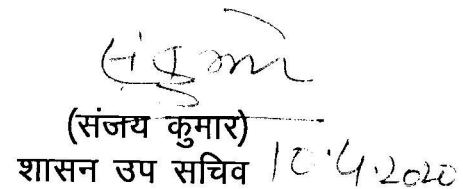 (संजय कुमार)
शासन उप सचिव 10.4.2020